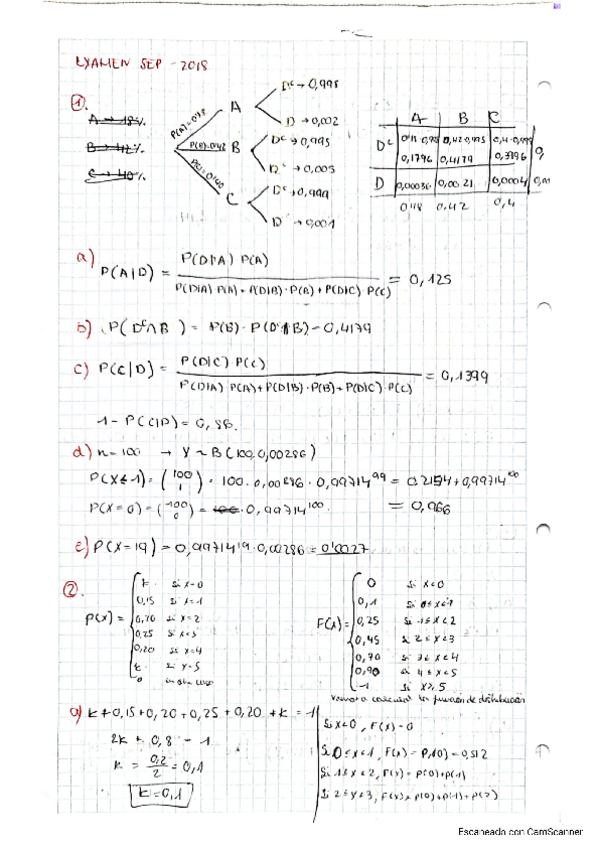 EXAMEN SEP - 2018
①.
A → 18%
B → 42%
C → 40%
P(B)=0'42
A
B
C
Dᶜ → 0,998
D → 0,002
Dᶜ → 0,995
D → 0,005
Dᶜ → 0,999
D → 0,001
A B C
Dᶜ
0,1796 0,4179 0,3996
D 0,00036 0,0021 0,0004
0,42 0,4
a) P(A|D) = P(D|A) P(A) / P(D|A) P(A) + P(D|B)·P(B) + P(D|C) P(C) = 0,125
b) P(Dᶜ∩B) = P(B)· P(Dᶜ∩B) = 0,4179
c) P(C|D) = P(D|C) P(C) / P(D|A) P(A) + P(D|B)·P(B) + P(D|C)·P(C) = 0,1399
1 - P(C|D) = 0,86.
d) n=100 → Y ~ B(100, 0,00286)
P(X≤1) = (100 1) = 100 · 0,00286 · 0,99714⁹⁹ = 0,2154 + 0,99714¹⁰⁰
P(X=0) = (100 0) = 0,99714¹⁰⁰. = 0,966
e) P(X=19) = 0,99714¹⁹ · 0,00286 = 0'0027
②.
P(x) =
k si x=0
0,15 si x=1
0,20 si x=2
0,25 si x=3
0,20 si x=4
k si x=5
0 en otro caso
F(x) =
0 si x<0
0,1 si 0≤x<1
0,25 si 1≤x<2
0,45 si 2≤x<3
0,70 si 3≤x<4
0,90 si 4≤x<5
1 si x≥5
Vamos a calcular la función de distribución
a) k + 0,15 + 0,20 + 0,25 + 0,20 + k = 1
2k + 0,8 = 1
k = 0,2 / 2 = 0,1
k = 0,1
Si x<0, F(x) = 0
Si 0≤x<1, F(x) = P(0) = 0,512
Si 1≤x<2, F(x) = P(0)+P(1)
Si 2≤x<3, F(x) = P(0)+P(1)+P(2)
Escaneado con CamScanner